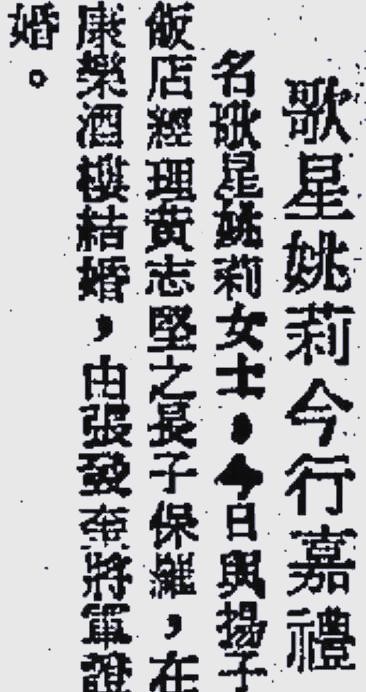 歌星姚莉今行嘉禮
名歌星姚莉女士，今日與揚子
飯店經理黃志堅之長子保羅，在
康樂酒樓結婚，由張發奎將軍證
婚。